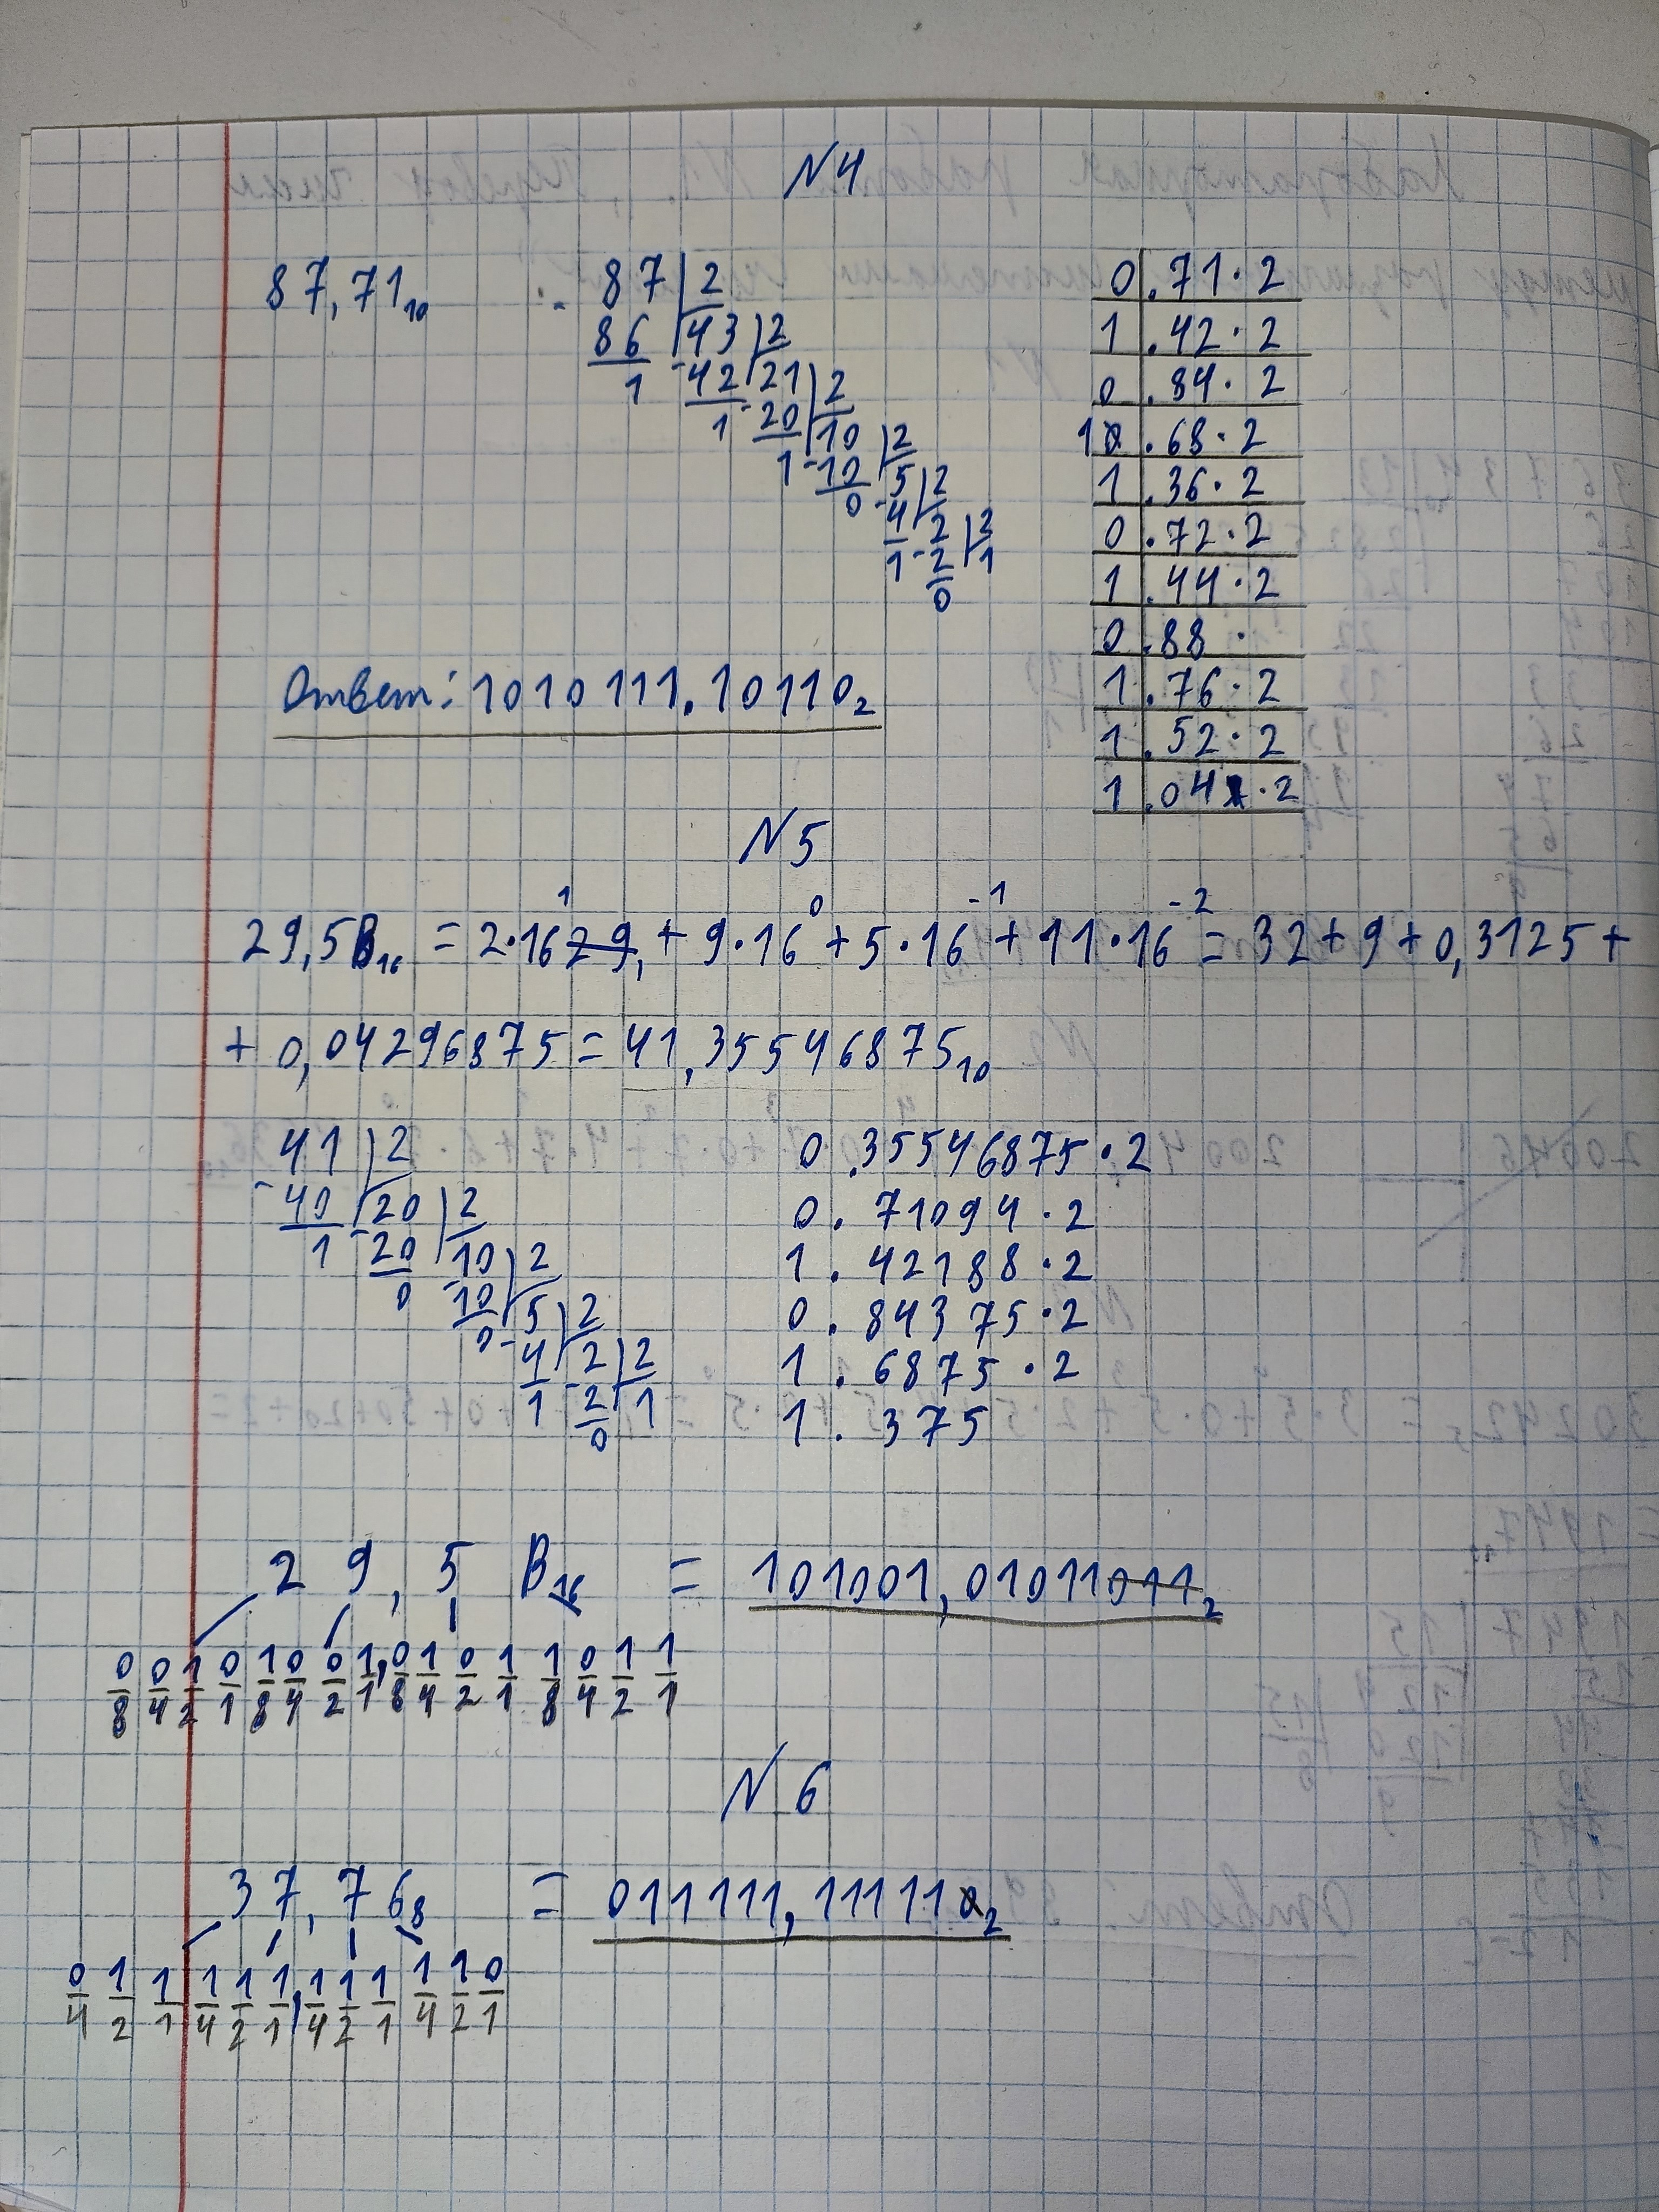 N4
87,71₁₀
- 87 | 2
86 | 43 | 2
1 - 42 | 21 | 2
1 - 20 | 10 | 2
1 - 10 | 5 | 2
0 - 4 | 2 | 2
1 - 2 | 1
0
0 | .71·2
1 | .42·2
0 | .84·2
1 | .68·2
1 | .36·2
0 | .72·2
1 | .44·2
0 | .88·
1 | .76·2
1 | .52·2
1 | .04·2
Ответ: 1010111.10110₂
N5
29,5B₁₆ = 2·16¹ 29, + 9·16⁰ + 5·16⁻¹ + 11·16⁻² = 32 + 9 + 0,3125 +
+ 0,04296875 = 41,35546875₁₀
- 41 | 2
40 | 20 | 2
1 - 20 | 10 | 2
0 - 10 | 5 | 2
0 - 4 | 2 | 2
1 - 2 | 1
0
0.35546875·2
0.71094·2
1.42188·2
0.84375·2
1.6875·2
1.375
29,5B₁₆ = 101001,01011011₂
0 0 1 0 1 0 0 1,0 1 0 1 1 0 1 1
8 4 2 1 8 4 2 1 8 4 2 1 8 4 2 1
N6
37,76₈ = 011111,11111₂
0 1 1 1 1 1,1 1 1 1 1 0
4 2 1 4 2 1 4 2 1 4 2 1